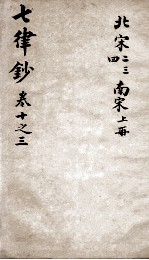 北宋二三四南宋上冊
七律鈔卷十之三